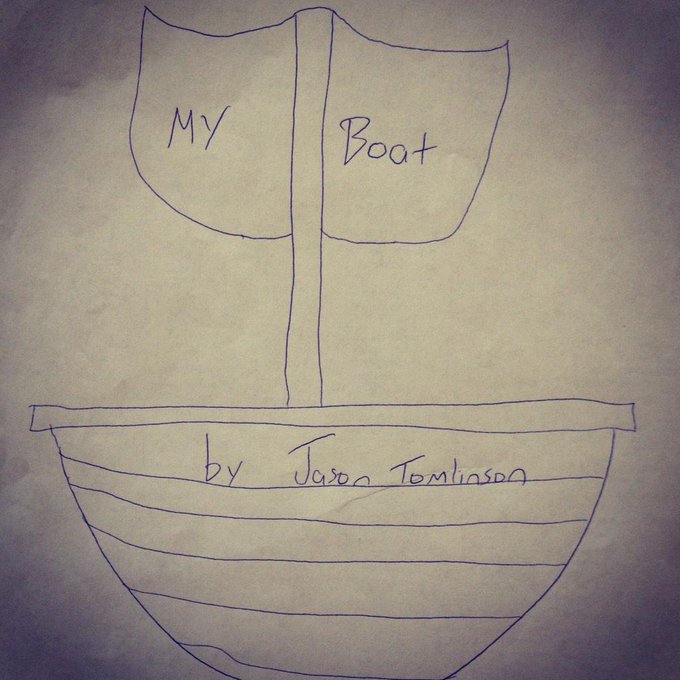 MY Boat
by Jason Tomlinson